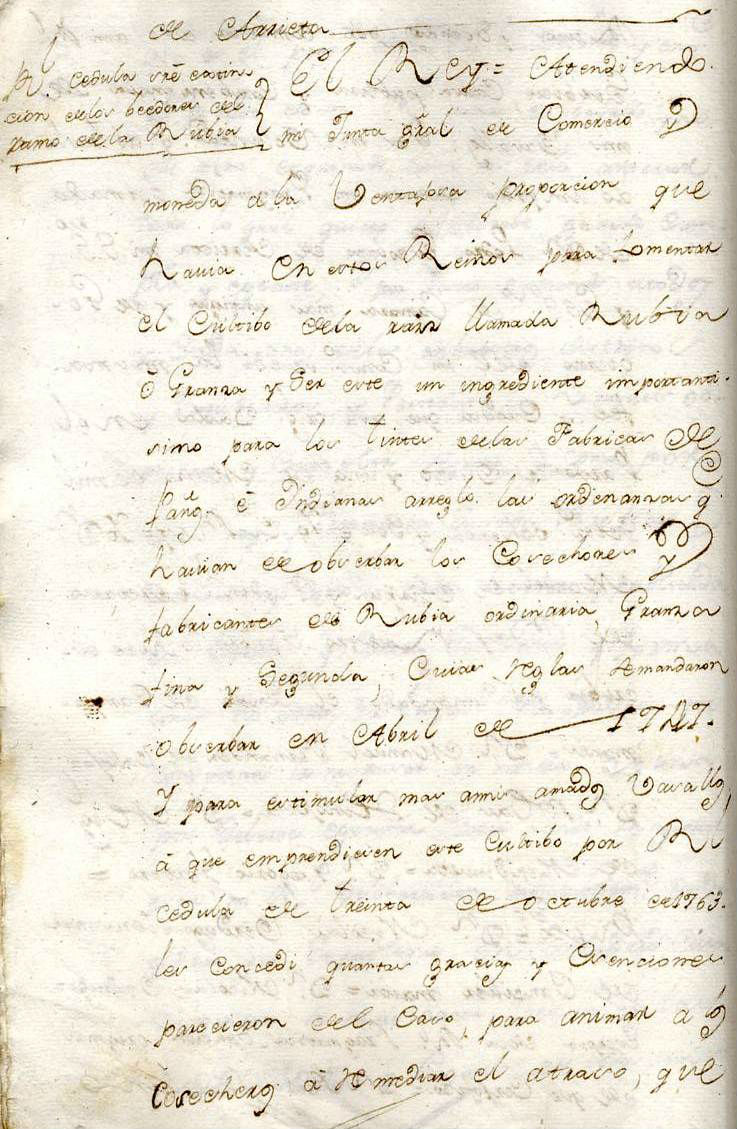 de Arrieta
Rl Cedula sre extin
cion de los beedores del
ramo de la Rubia
El Rey = Atendiendo
mi Junta gral de Comercio y
moneda a la Ventajosa proporcion que
havia en estos Reinos para fomentar
el Cultibo de la raiz llamada Rubia
ò Granza y ser este un ingrediente importanti-
simo para los tintes de las Fabricas de
é Indianas arreglo las ordenanzas q
havian de obserbar los Cosecheros y
fabricantes de Rubia ordinaria, Granza
fina y Segunda, Cuias reglas semandaron
obserbar en Abril de 1747.
Y para estimular mas amis amados Vasallos,
à que emprendiesen este Cultibo por Rl
cedula de treinta de octubre de 1763.
les Concedi quantas gracias y Esenciones
parecieron del Caso, para animar a los
Cosecheros à remediar el atraso, que